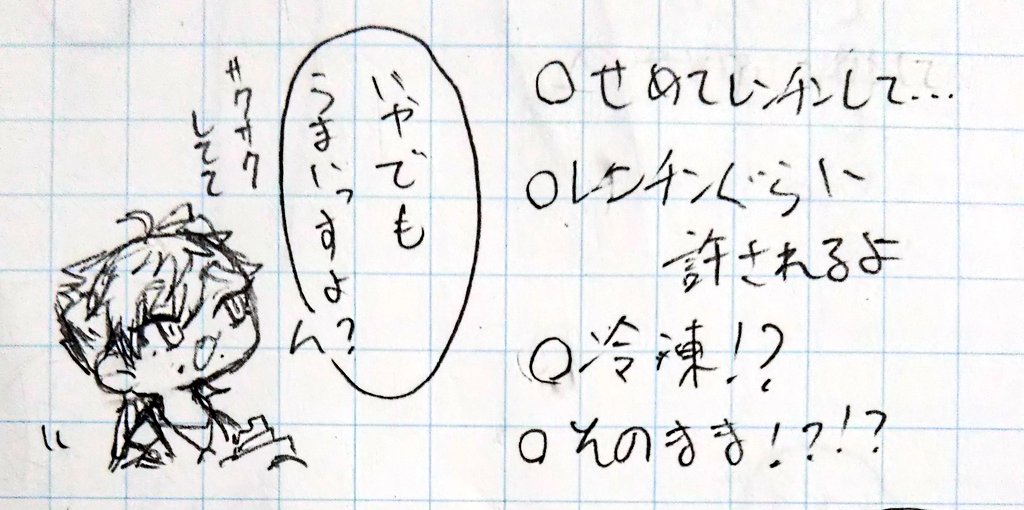 ○せめてレンチンして…
○レンチンぐらい
許されるよ
○冷凍!?
○そのまま!?!?
いやでも
うまいっすよ?
サクサク
してて